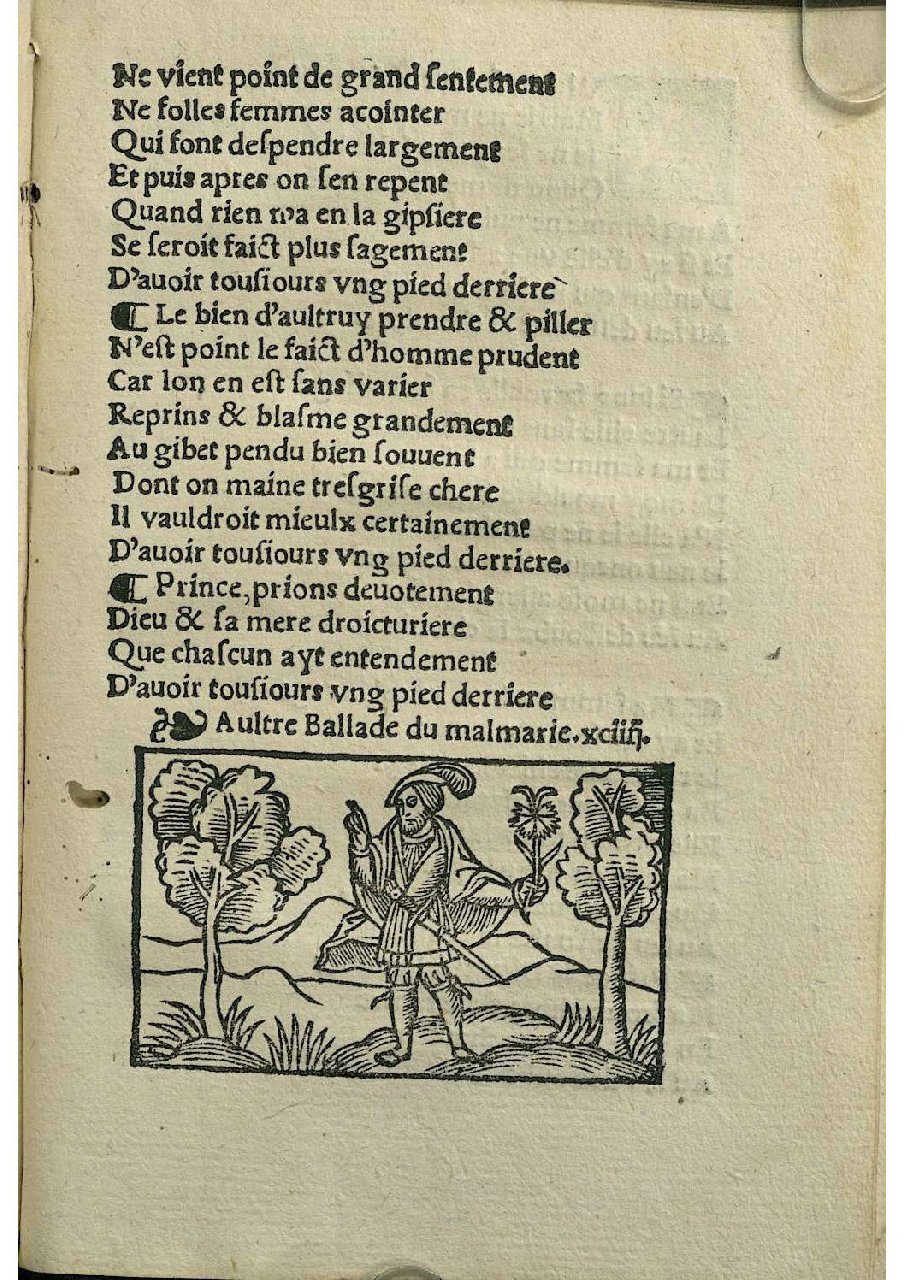 Ne vient point de grand ſentement
Ne folles femmes acointer
Qui font deſpendre largement
Et puis apres on ſen repent
Quand rien n'a en la gipſiere
Se ſeroit faict plus ſagement
D'auoir touſiours vng pied derriere
¶ Le bien d'aultruy prendre & piller
N'est point le faict d'homme prudent
Car lon en eſt ſans varier
Reprins & blaſme grandement
Au gibet pendu bien ſouuent
Dont on maine treſgriſe chere
Il vauldroit mieulx certainement
D'auoir touſiours vng pied derriere.
¶ Prince, prions deuotement
Dieu & ſa mere droicturiere
Que chaſcun ayt entendement
D'auoir touſiours vng pied derriere
❧ Aultre Ballade du malmarie. xciiij.